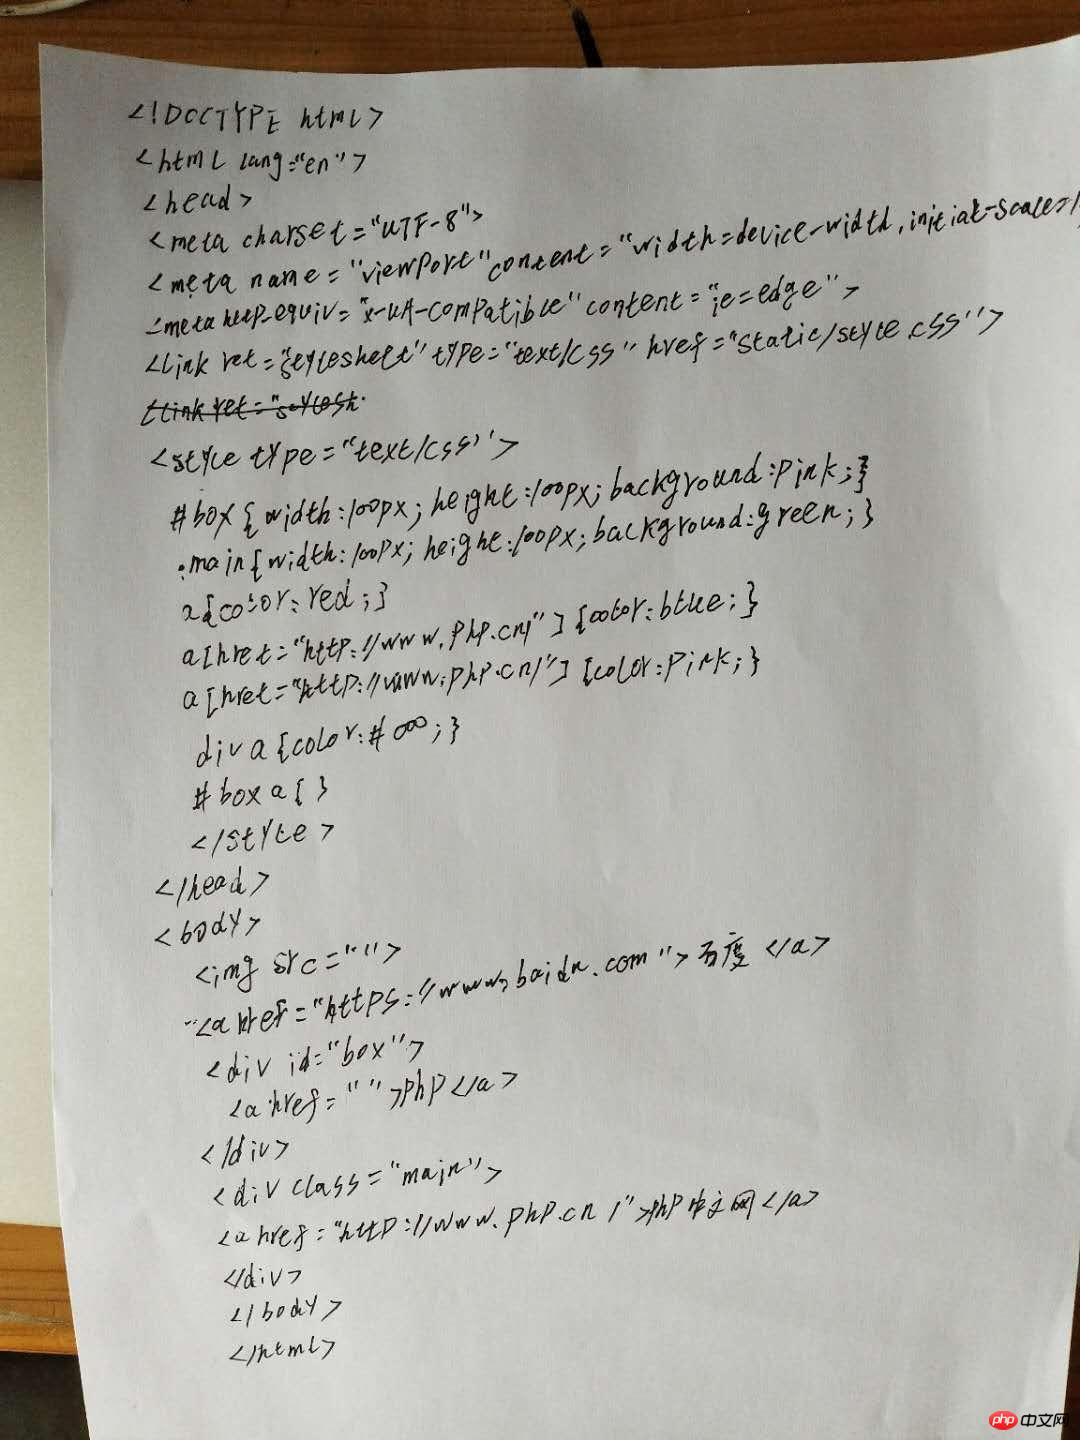 <!DOCTYPE html>
<html lang="en">
<head>
<meta charset="UTF-8">
<meta name="viewport" content="width=device-width,initial-scale=1
<meta http-equiv="x-UA-Compatible" content="ie=edge">
<link rel="stylesheet" type="text/css" href="static/style.css">
<link rel="stylesh
<style type="text/css">
#box{width:100px; height:100px; background:pink;}
.main{width:100px; height:100px; background:green;}
a{color:red;}
a[href="http://www.php.cn/"]{color:blue;}
a[href="http://www.php.cn/"]{color:pink;}
div a{color:#000;}
#box a{}
</style>
</head>
<body>
<img src="">
<a href="https://www.baidu.com">百度</a>
<div id="box">
<a href="">php</a>
</div>
<div class="main">
<a href="http://www.php.cn/">php中文网</a>
</div>
</body>
</html>
php 中文网